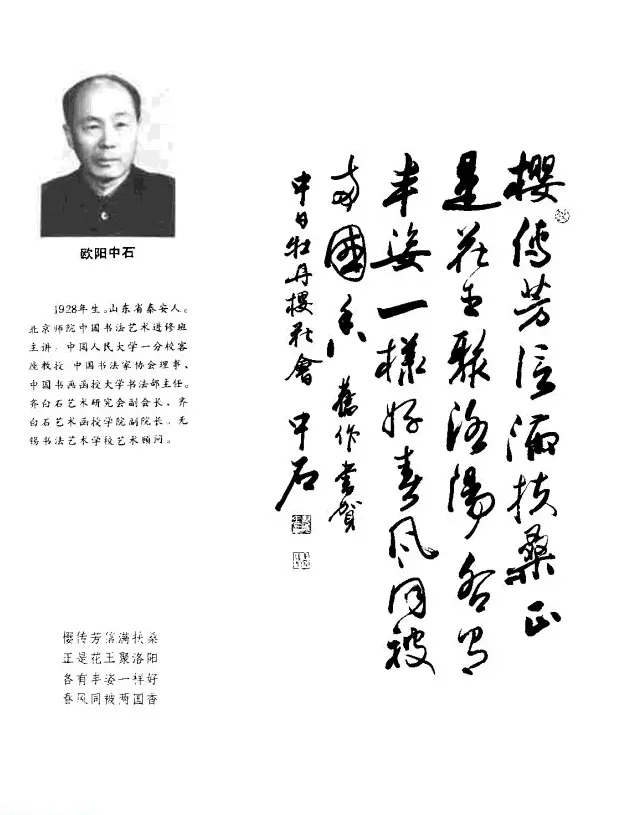 欧阳中石
1928年生。山东省泰安人。
北京师院中国书法艺术进修班
主讲，中国人民大学一分校客
座教授，中国书法家协会理事、
中国书画函授大学书法部主任。
齐白石艺术研究会副会长、齐
白石艺术函授学院副院长。无
锡书法艺术学校艺术顾问。
櫻傳芳信滿扶桑正
是花王聚洛陽各有
丰姿一樣好春风同被
两國香 舊作书賀
中日牡丹櫻花會 中石
樱传芳信满扶桑
正是花王聚洛阳
各有丰姿一样好
春风同被两国香